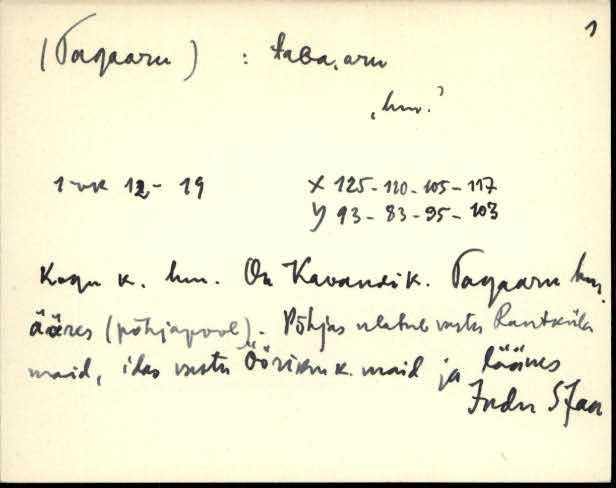 1
(Tagaaru) : taGa,aru
„hm.”
1-vk 12 - 19 X 125-110-105-117
Y) 93-83-95-103
Kogu k. hm. On Kavandi k. Tagaaru hm.
ääres (põhjapool). Põhjas ulatub vastu Randküla
maid, idas vastu Ööriku k. maid ja läänes